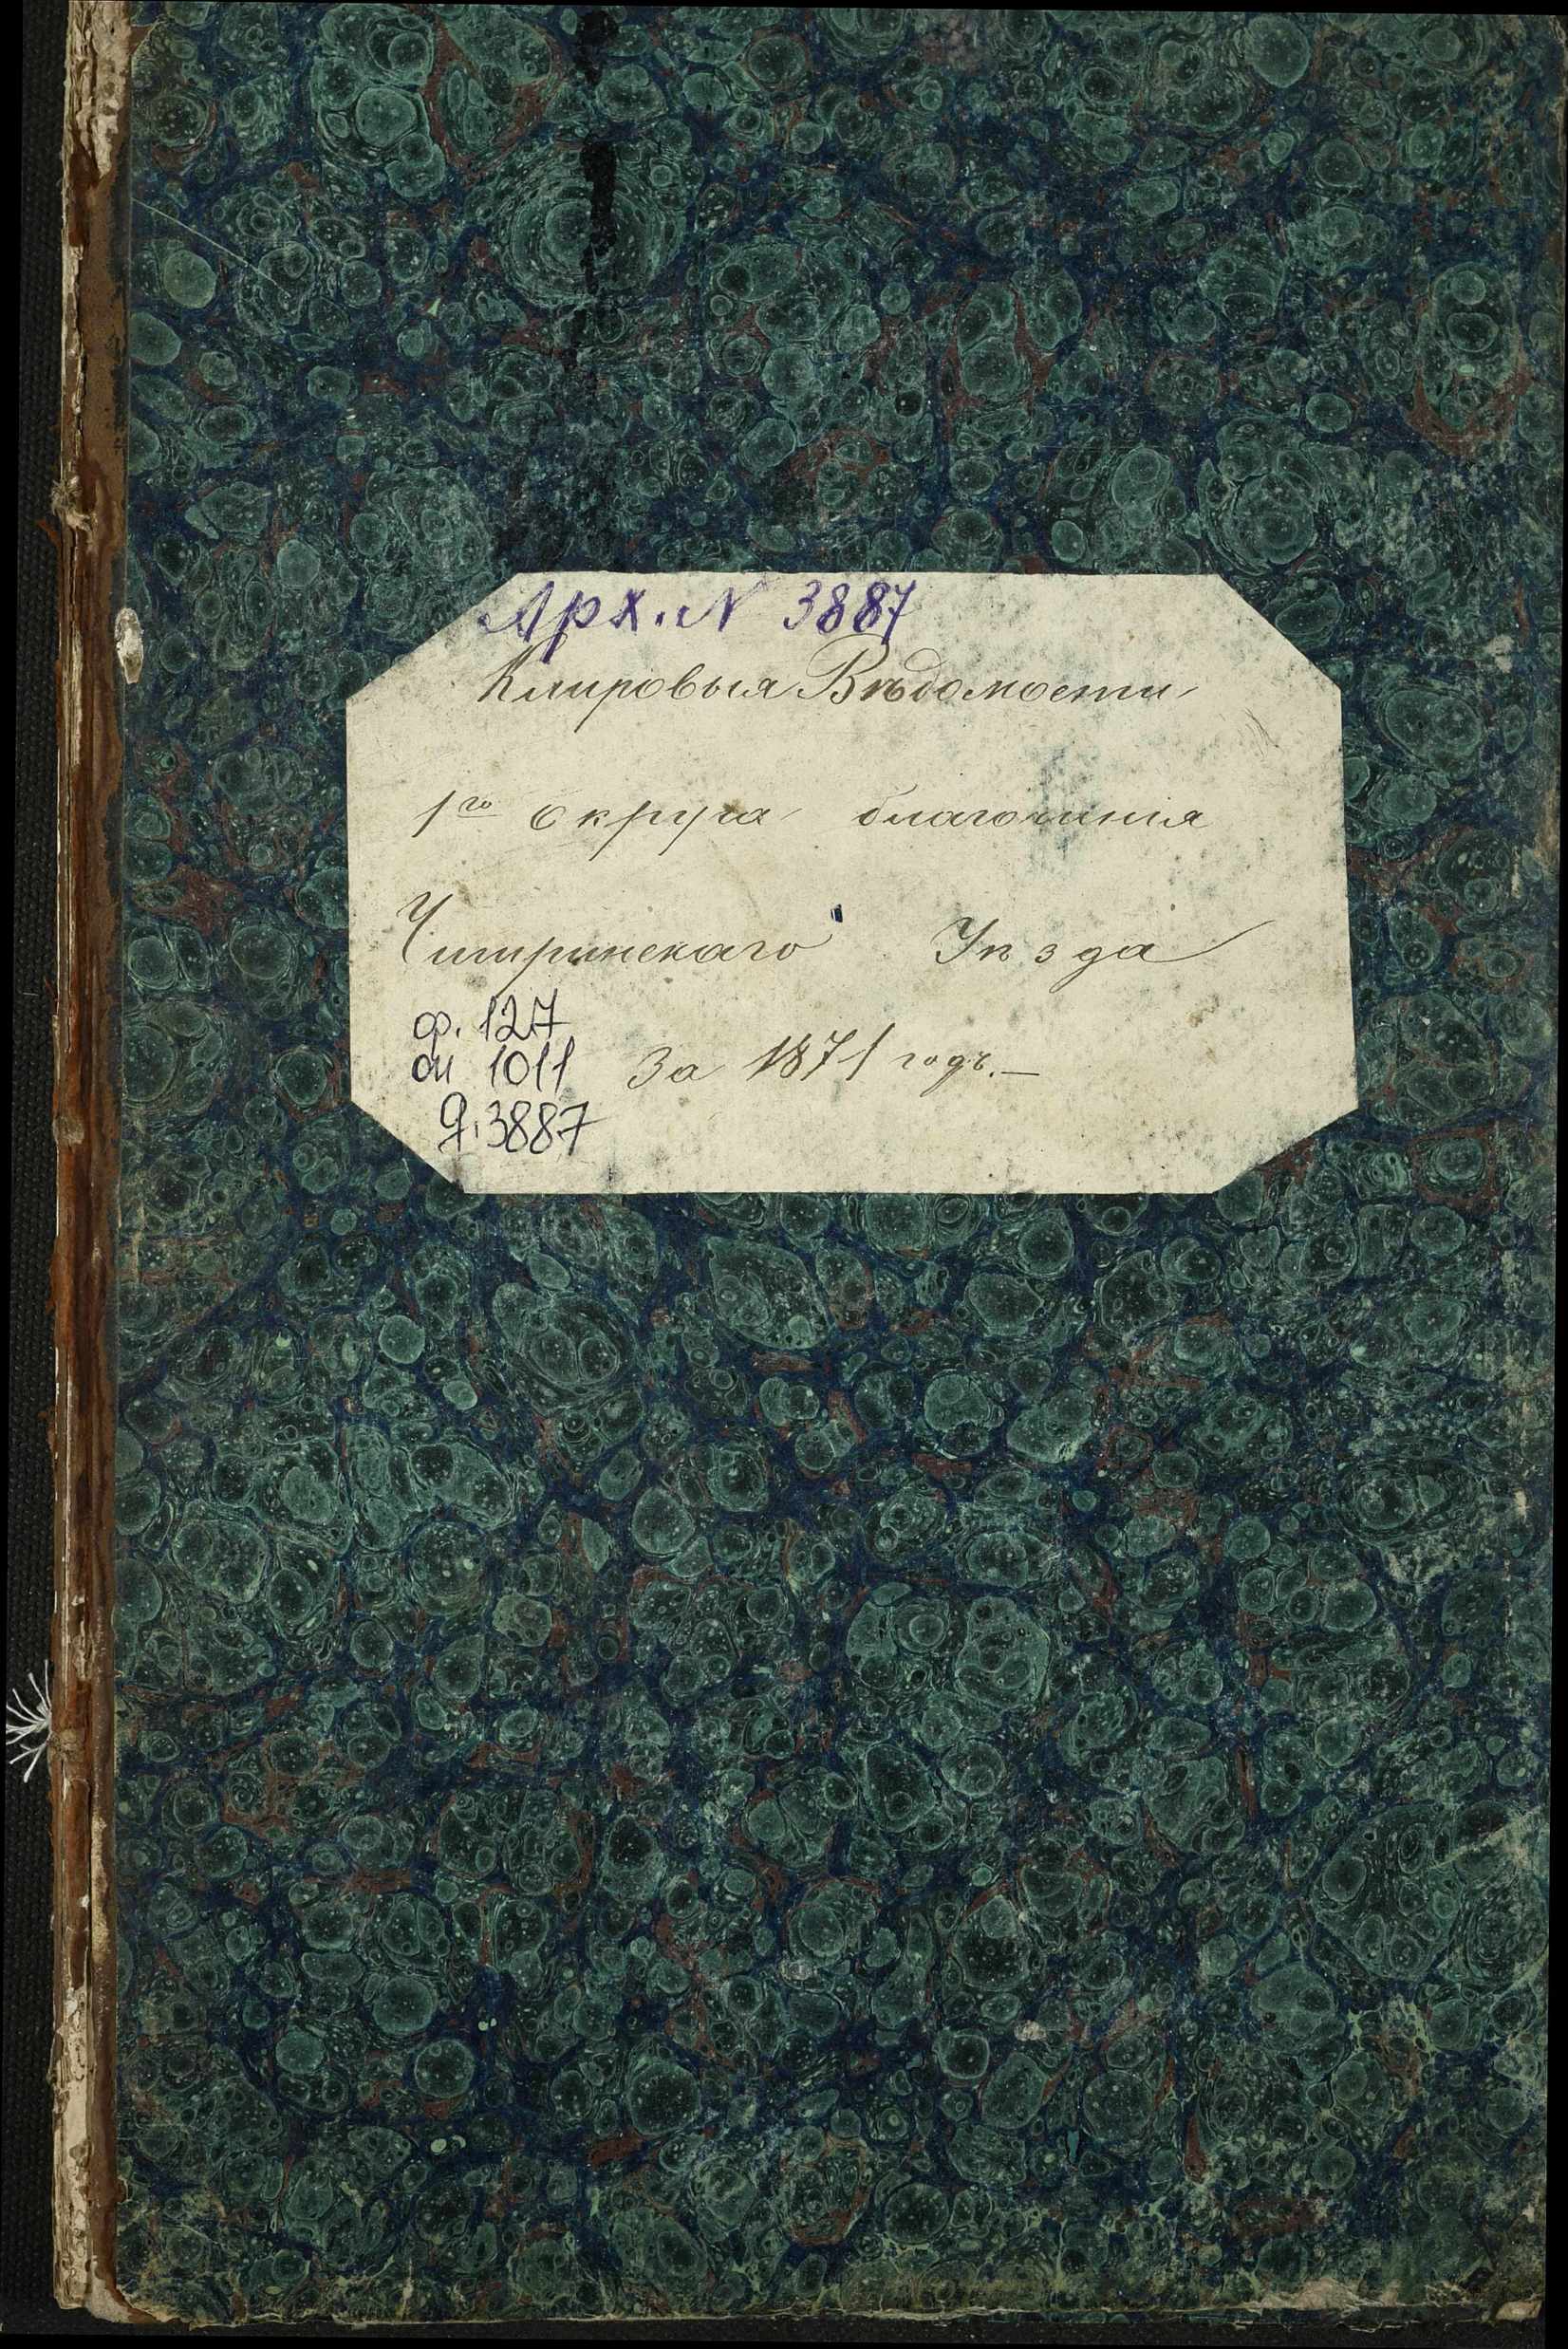 Арх. N 3887
Клировыя Вѣдомости
1го Округа благочинія
Чигиринскаго Уѣзда
ф. 127
оп 1011
За 1871 годъ.—
д. 3887